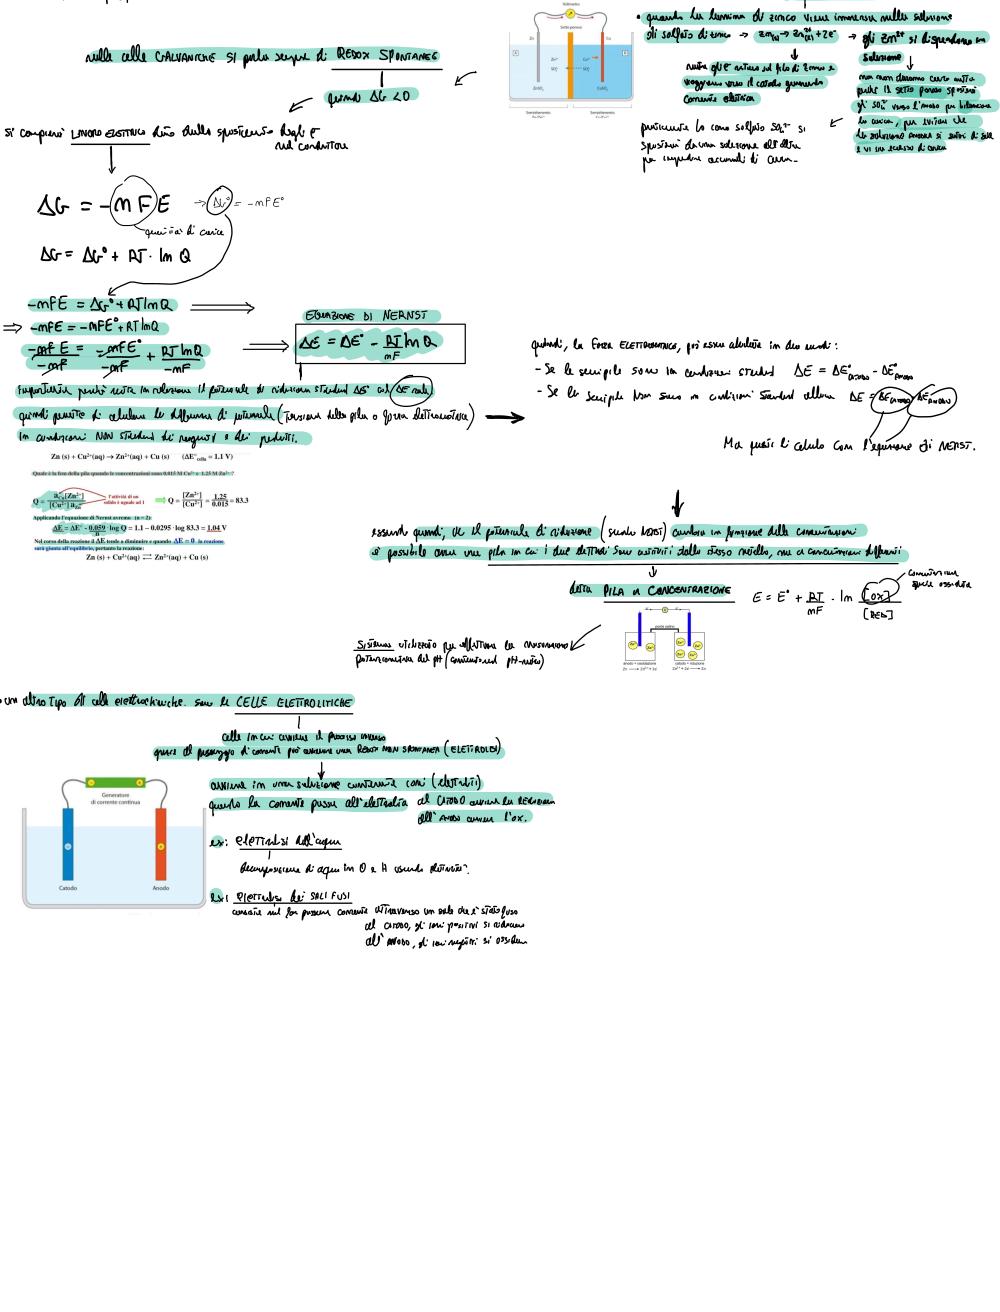 nelle celle GALVANICHE si parla sempre di REDOX SPONTANEE
quindi ΔG < 0
si compierà LAVORO ELETTRICO dato dallo spostamento degli e⁻
nel conduttore
ΔG = -nFE → ΔG° = -nFE°
quantità di carica
ΔG = ΔG° + RT · ln Q
-nFE = ΔG° + RT ln Q
⇒ -nFE = -nFE° + RT ln Q
-nFE/-nF = -nFE°/-nF + RT ln Q/-nF
EQUAZIONE DI NERNST
ΔE = ΔE° - RT/nF ln Q
importante perché mette in relazione il potenziale di riduzione standard ΔE° col ΔE reale
quindi permette di calcolare la differenza di potenziale (Tensione della pila o forza elettromotrice)
in condizioni NON standard dei reagenti e dei prodotti.
Zn (s) + Cu²⁺(aq) → Zn²⁺(aq) + Cu (s) (ΔE°cella = 1.1 V)
Quale è la fem della pila quando le concentrazioni sono 0.015 M Cu²⁺ e 1.25 M Zn²⁺ ?
Q = aCu [Zn²⁺] / [Cu²⁺] aZn
l'attività di un
solido è uguale ad 1
Q = [Zn²⁺]/[Cu²⁺] = 1.25/0.015 = 83.3
Applicando l'equazione di Nernst avremo (n = 2):
ΔE = ΔE° - 0.059/n · log Q = 1.1 – 0.0295 · log 83.3 = 1.04 V
Nel corso della reazione il ΔE tende a diminuire e quando ΔE = 0 la reazione
sarà giunta all'equilibrio, pertanto la reazione:
Zn (s) + Cu²⁺(aq) ⇄ Zn²⁺(aq) + Cu (s)
Voltmetro
Setto poroso
Zn
Cu
Zn²⁺
Cu²⁺
SO₄²⁻
ZnSO₄
CuSO₄
• quando la lamina di zinco viene immersa nella soluzione
di solfato di zinco → Zn(s) → Zn²⁺ + 2e⁻ → gli Zn²⁺ si disperdono in
soluzione
viaggiano verso il catodo generando
corrente elettrica
ma non daranno carica netta
perché il setto poroso sposterà
gli SO₄²⁻ verso l'anodo per bilanciare
la carica, per evitare che
praticamente lo ione solfato SO₄²⁻ si
sposterà da una soluzione all'altra
per impedire accumuli di carica
quindi, la FORZA ELETTROMOTRICE, può essere calcolata in due modi:
- Se le semipile sono in condizioni standard ΔE = ΔE°CATODO - ΔE°ANODO
- Se le semipile non sono in condizioni standard allora ΔE = ΔECATODO - ΔEANODO
Ma prima li calcolo con l'equazione di NERNST.
essendo quindi, che il potenziale di riduzione (secondo NERNST) cambia in funzione delle concentrazioni
è possibile avere una pila in cui i due elettrodi sono costituiti dallo stesso metallo, ma a concentrazioni differenti
detta PILA A CONCENTRAZIONE
E = E° + RT/nF · ln [OX]/[RED]
concentrazione
specie ossidata
ponte salino
anodo = ossidazione
catodo = riduzione
Sistema utilizzato per effettuare la misurazione
potenziometrica del pH (contenuto nel pH-metro)
un altro tipo di celle elettrochimiche sono le CELLE ELETTROLITICHE
celle in cui avviene il processo inverso
grazie al passaggio di corrente può avvenire una REDOX NON SPONTANEA (ELETTROLISI)
avviene in una soluzione contenente ioni (elettroliti)
quando la corrente passa all'elettrolita al CATODO avviene la RIDUZIONE
all'ANODO avviene l'ox.
Generatore
di corrente continua
Catodo
Anodo
es: elettrolisi dell'acqua
decomposizione di acqua in O e H usando elettricità.
es: elettrolisi dei SALI FUSI
consiste nel far passare corrente attraverso un sale che è stato fuso
al CATODO, gli ioni positivi si riducono
all'ANODO, gli ioni negativi si ossidano